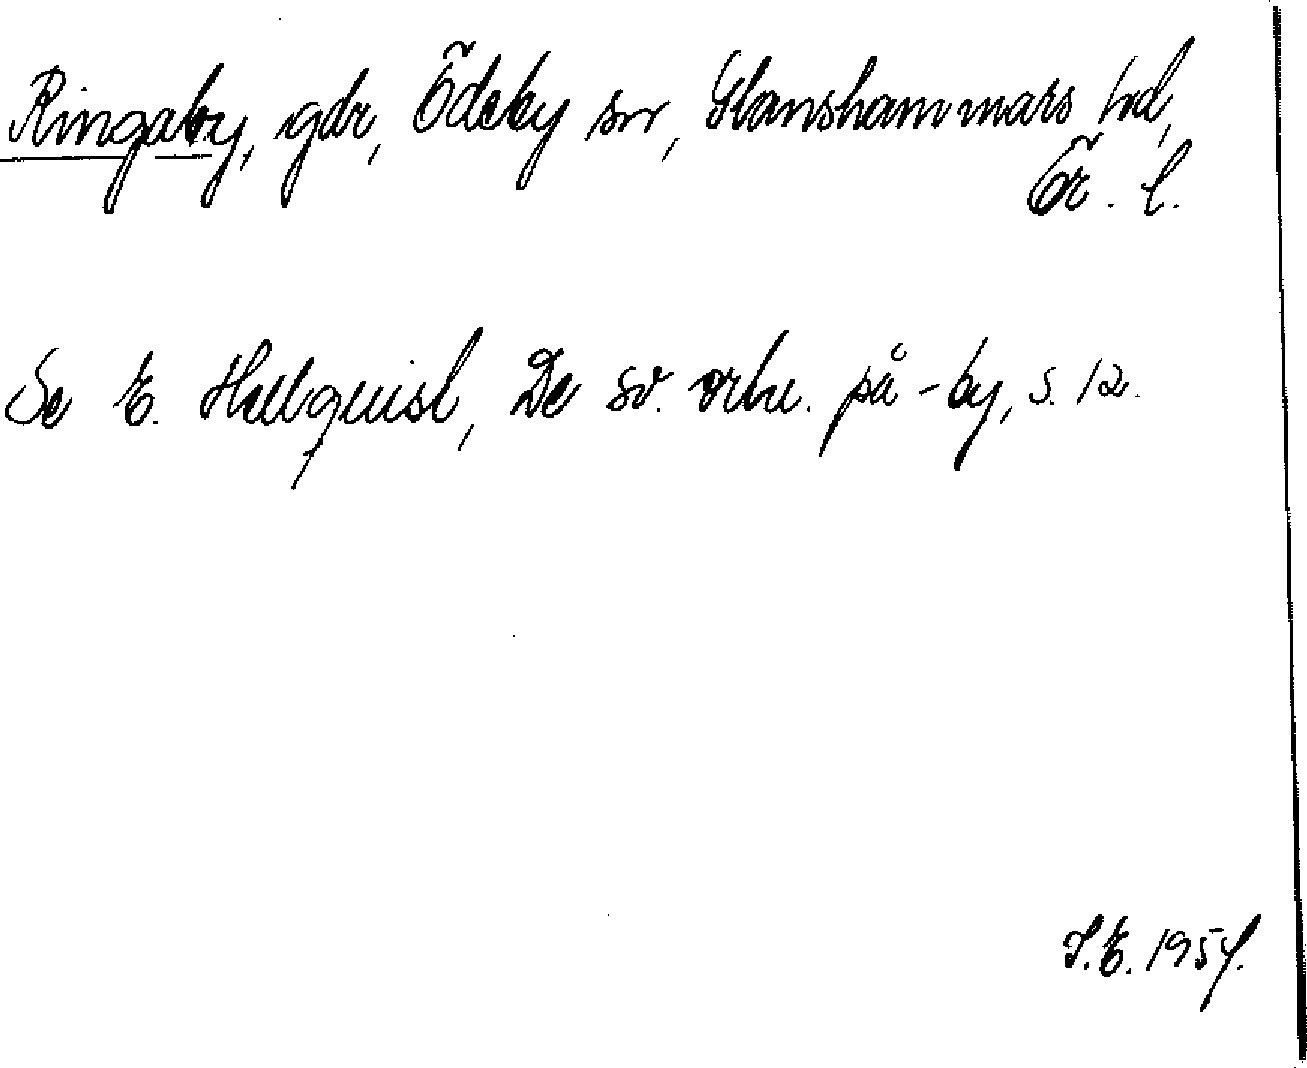 Ringaby, gdr, Ödeby sn, Glanshammars hd,
Ör. l.
Se E. Hellquist, De sv. ortn. på -by, s. 12.
S.E. 1954.